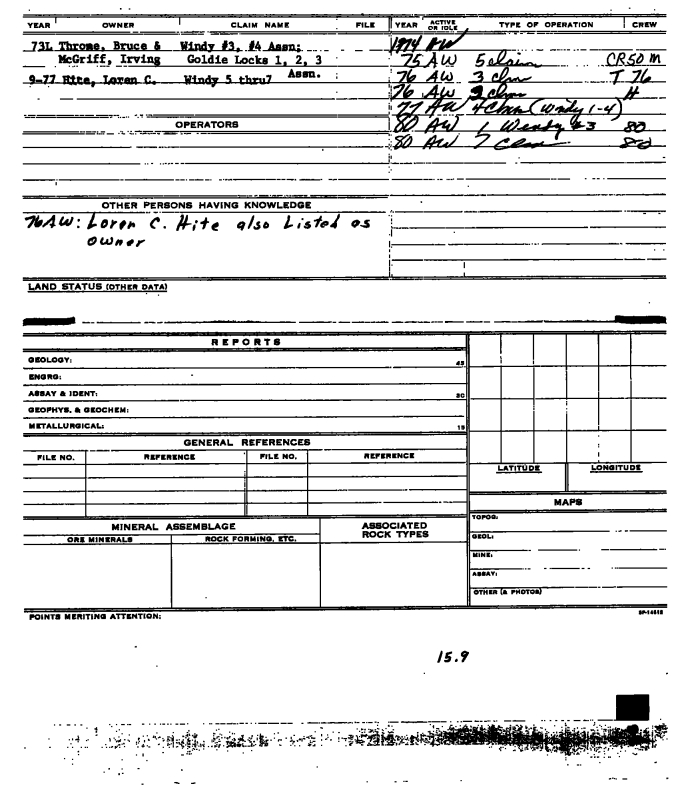 YEAR OWNER CLAIM NAME FILE YEAR ACTIVE OR IDLE TYPE OF OPERATION CREW
73L Throne, Bruce & Windy #3, #4 Assn; 1974 AW
McGriff, Irving Goldie Locks 1, 2, 3 75 AW 5 claim CR50 M
9-77 Hite, Loren C. Windy 5 thru7 Assn. 76 AW 3 clm T 76
76 AW 2 clm H
77 AW 4 Clm (Windy 1-4)
OPERATORS 80 AW 1 Wendy #3 80
80 AW 7 Clm 80
OTHER PERSONS HAVING KNOWLEDGE
76AW: Loren C. Hite also Listed as
owner
LAND STATUS (OTHER DATA)
REPORTS
GEOLOGY: 45
ENGRG:
ASSAY & IDENT: 30
GEOPHYS. & GEOCHEM:
METALLURGICAL: 15
GENERAL REFERENCES
FILE NO. REFERENCE FILE NO. REFERENCE
LATITUDE LONGITUDE
MAPS
MINERAL ASSEMBLAGE ASSOCIATED ROCK TYPES
ORE MINERALS ROCK FORMING, ETC.
TOPOG:
GEOL:
MINE:
ASSAY:
OTHER (& PHOTOS)
POINTS MERITING ATTENTION:
15.9